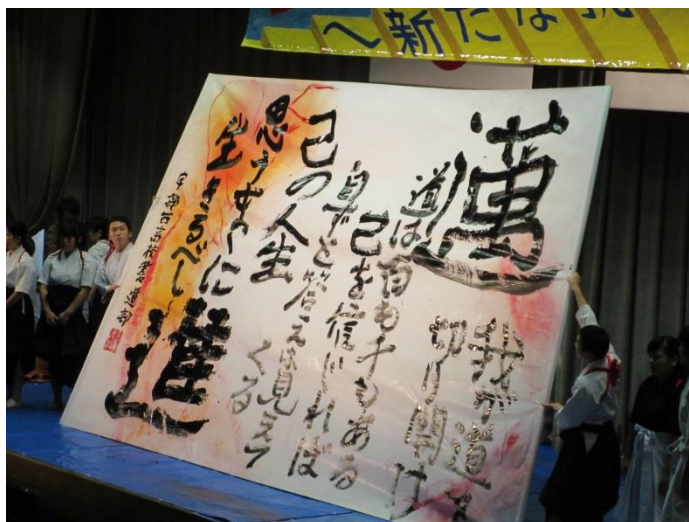 ～新たな
邁
我が道を
切り開け
道は百も千もある
己を信じれば
自ずと答えは見えて
くる
己の人生
思うがまゝに
生きるべし
進